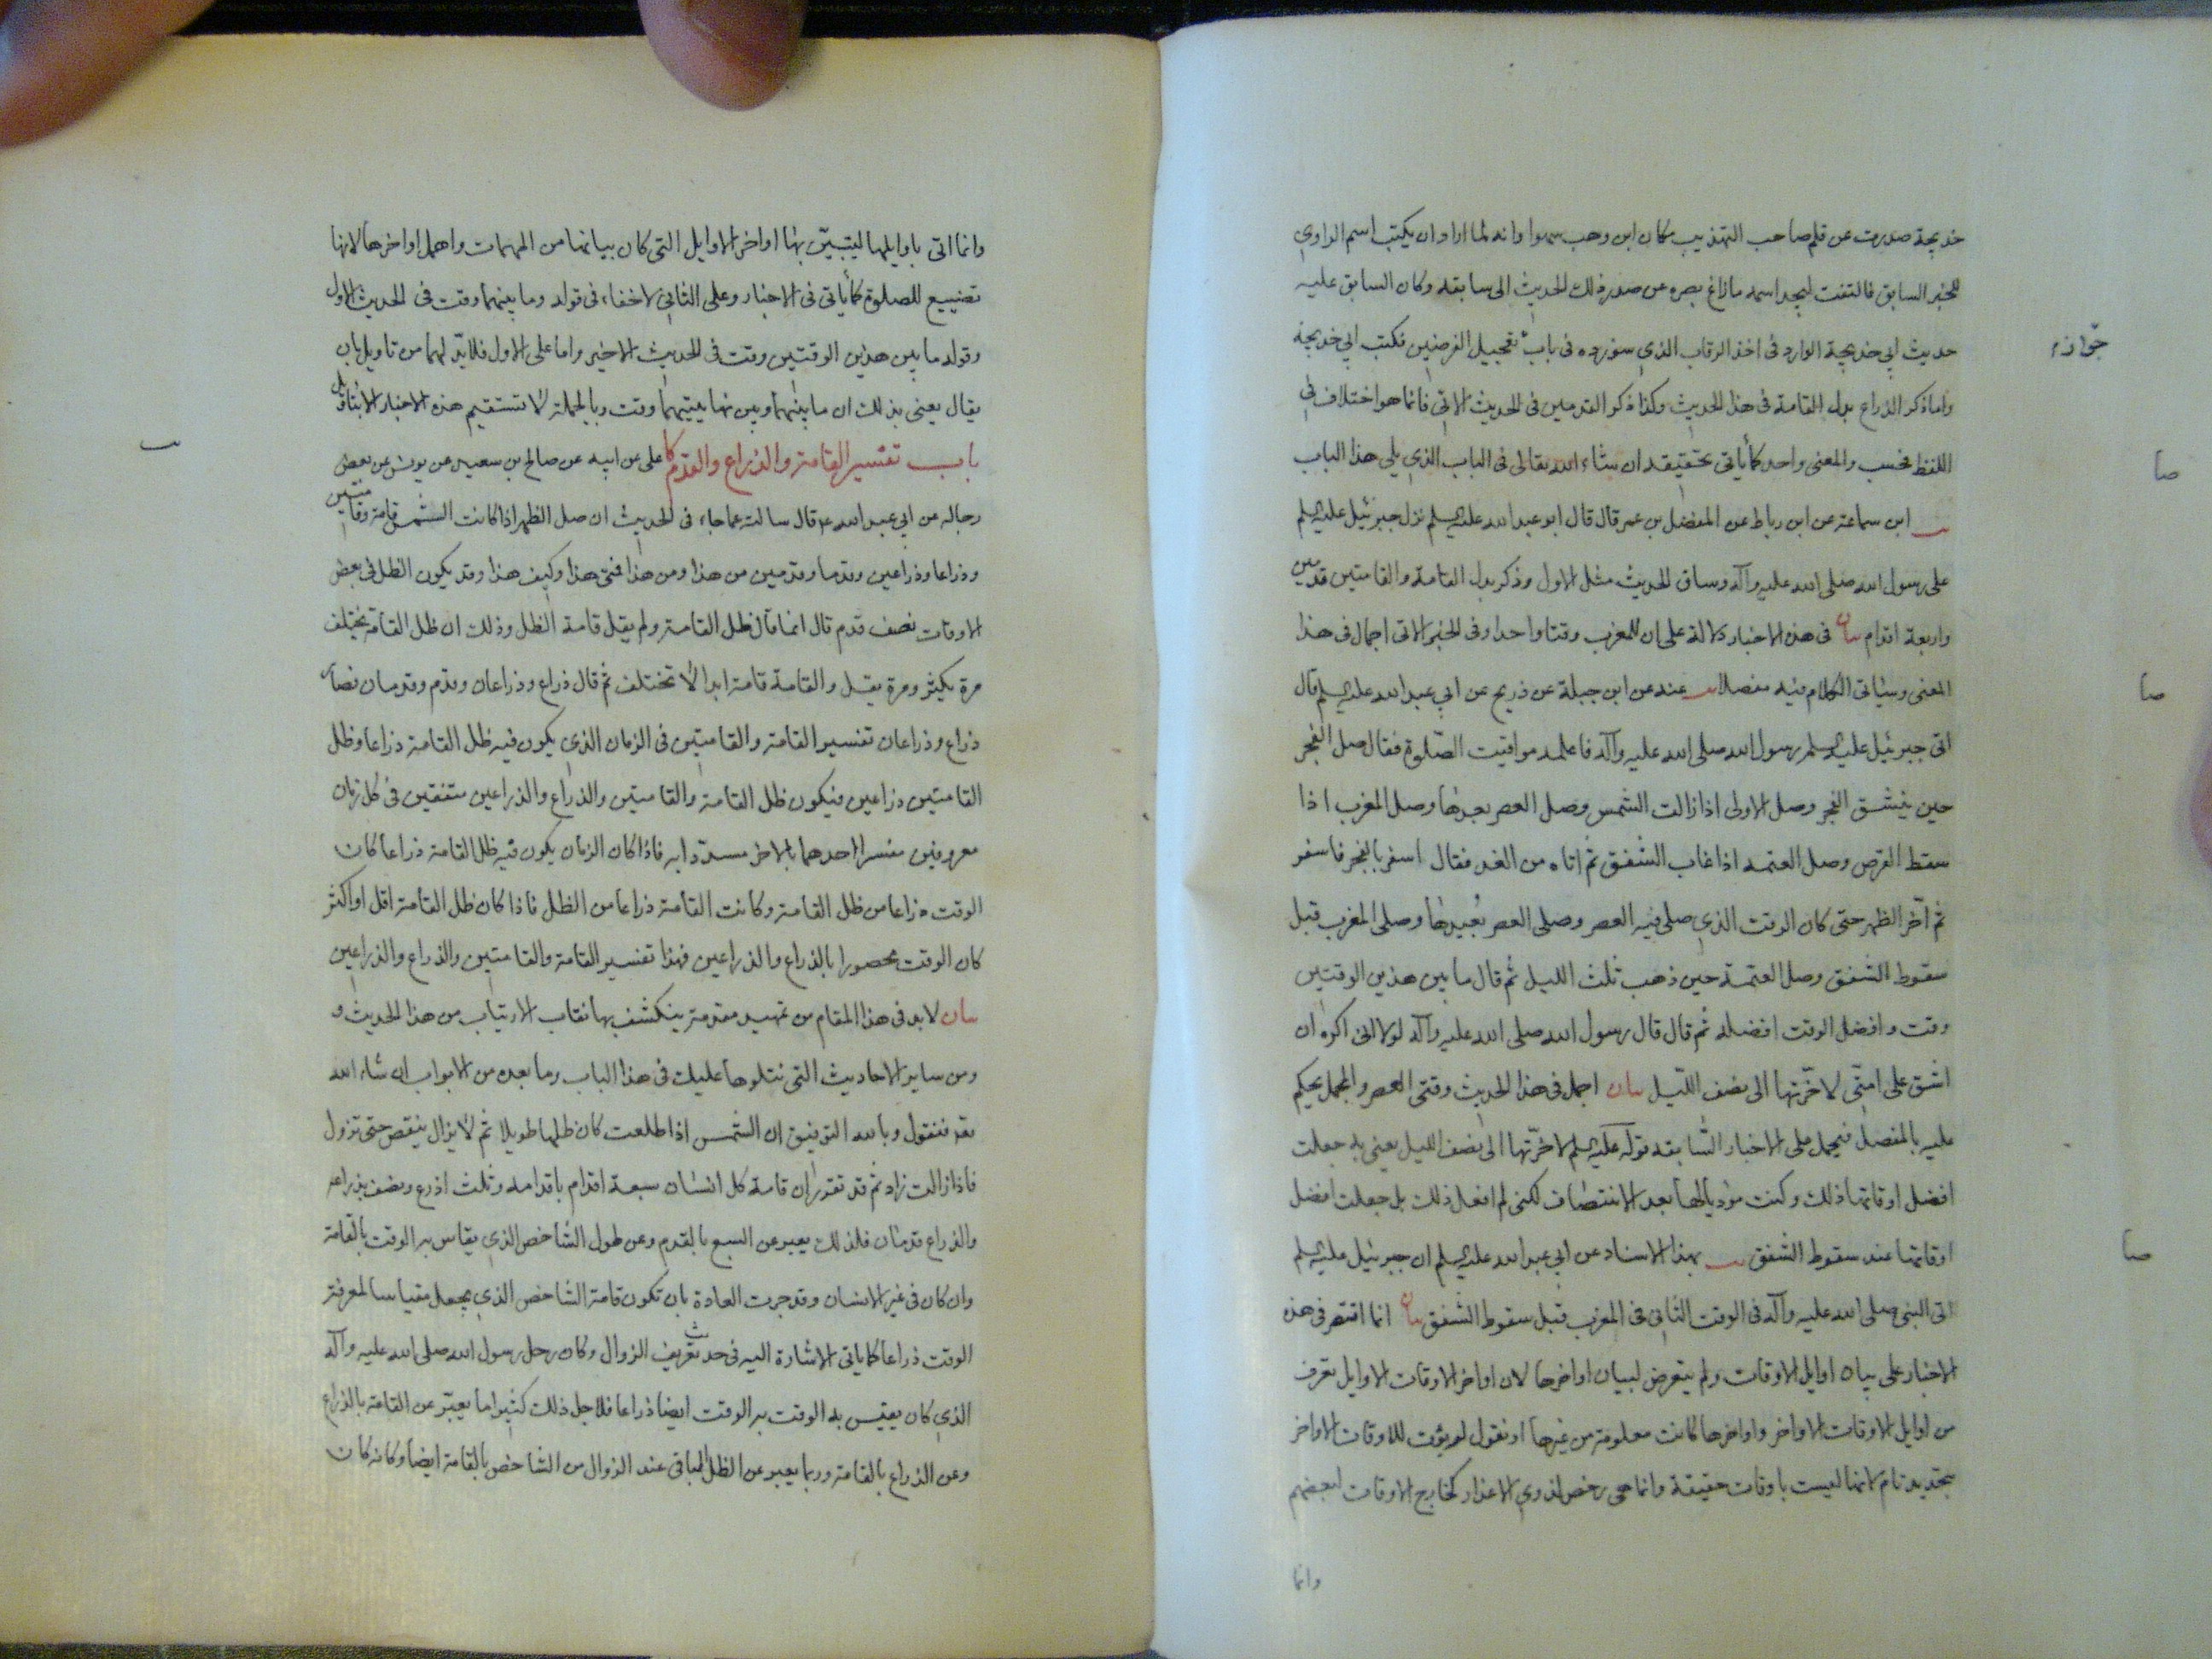 خديجة صدرت عن قلم صاحب التهذيب مكان ابن وهب سهوا وانه لما اراد ان يكتب اسم الراوي
للخبر السابق فالتفت ليجد اسمه مازاغ بصره عن صدر ذلك الحديث الى سابقه وكان السابق عليه
حديث ابي خديجة الوارد في اخذ الرقاب الذي سنورده في باب تعجيل الفرضين فكتب ابي خديجة
جوازه
واما ذكر الذراع بدل القامة في هذا الحديث وكذا ذكر القدمين في الحديث الاتي فانما هو اختلاف في
اللفظ فحسب والمعنى واحد كما ياتي تحقيقه ان شاء الله تعالى في الباب الذي يلي هذا الباب
صا
يب ابن سماعة عن ابن رباط عن المفضل بن عمر قال قال ابو عبد الله عليه السلم نزل جبرئيل عليه السلم
على رسول الله صلى الله عليه وآله وساق الحديث مثل الاول وذكر بدل القامة والقامتين قدمين
واربعة اقدام بيان في هذه الاخبار دلالة على ان للمغرب وقتا واحدا وفي الخبر الاتي اجمال في هذا
المعنى وسياتي الكلام فيه مفصلا يب عنه عن ابن جبلة عن ذريح عن ابي عبد الله عليه السلم قال
صا
اتى جبرئيل عليه السلم رسول الله صلى الله عليه وآله فاعلمه مواقيت الصّلوة فقال صل الفجر
حين ينشق الفجر وصل الاولى اذا زالت الشمس وصل العصر بعيدها وصل المغرب اذا
سقط القرص وصل العتمه اذا غاب الشفق ثم اتاه من الغد فقال اسفر بالفجر فاسفر
ثم اخّر الظهر حتى كان الوقت الذي صلى فيه العصر وصلى العصر بُعيدها وصلى المغرب قبل
سقوط الشفق وصل العتمة حين ذهب ثلث الليل ثم قال ما بين هذين الوقتين
وقت وافضل الوقت افضله ثم قال قال رسول الله صلى الله عليه وآله لولا اني اكره ان
اشق على امتي لاخّرتها الى نصف اللّيل بيان اجمل في هذا الحديث وقتي العصر والمجمل يحكم
عليه بالمفصل فيحمل على الاخبار السّابقة قوله عليه السلم لاخّرتها الى نصف الليل يعني به جعلت
افضل اوقاتها ذلك وكنت مؤديا لها بعد الانتصاف لكني لم افعل ذلك بل جعلت افضل
اوقاتها عند سقوط الشفق يب بهذا الاسناد عن ابي عبد الله عليه السلم ان جبرئيل عليه السلم
صا
اتى النبي صلى الله عليه وآله في الوقت الثاني في المغرب قبل سقوط الشفق بيان انما اقتصر في هذه
الاخبار على بيان اوايل الاوقات ولم يتعرض لبيان اواخرها لان اواخر الاوقات الاوايل تعرف
من اوايل الاوقات الاواخر واواخرها كانت معلومة من غيرها او نقول لم يؤت للاوقات الاواخر
بتحديد تام لانها ليست باوقات حقيقة وانما هي رخص لذوي الاعذار كخارج الاوقات لبعضهم
وانما
وانما اتى باوايلها ليتبيّن بها اواخر الاوايل التي كان بيانها من المهمات واهمل اواخرها لانها
تضييع للصلوة كما ياتي في الاخبار وعلى الثاني لا خفاء في قوله وما بينهما وقت في الحديث الاول
وقوله ما بين هذين الوقتين وقت في الحديث الاخير واما على الاول فلا بدّ لهما من تاويل بان
يقال يعني بذلك ان ما بينهما وبين نهايتيهما وقت وبالجملة لا تستقيم هذه الاخبار الا بتاويل
باب تفسير القامة والذراع والقدم كا علي عن ابيه عن صالح بن سعيد عن يونس عن بعض
يب
رجاله عن ابي عبد الله ع قال سالته عما جاء في الحديث ان صل الظهر اذا كانت الشمس قامة وقامتين
وذراعا وذراعين وقدما وقدمين من هذا ومن هذا فمتى هذا وكيف هذا وقد يكون الظل في بعض
الاوقات نصف قدم قال انما قال ظل القامة ولم يقل قامة الظل وذلك ان ظل القامة يختلف
مرة يكثر ومرة يقل والقامة قامة ابدا لا تختلف ثم قال ذراع وذراعان وقدم وقدمان فصار
ذراع وذراعان تفسير القامة والقامتين في الزمان الذي يكون فيه ظل القامة ذراعا وظل
القامتين ذراعين فيكون ظل القامة والقامتين والذراع والذراعين متفقين في كل زمان
معروفين مفسرا احدهما بالاخر مسدّدا به فاذا كان الزمان يكون فيه ظل القامة ذراعا كان
الوقت ذراعا من ظل القامة وكانت القامة ذراعا من الظل فاذا كان ظل القامة اقل او اكثر
كان الوقت محصورا بالذراع والذراعين فهذا تفسير القامة والقامتين والذراع والذراعين
بيان لا بد في هذا المقام من تمهيد مقدمة ينكشف بها نقاب الارتياب من هذا الحديث و
ومن ساير الاحاديث التي نتلوها عليك في هذا الباب وما بعده من الابواب ان شاء الله
تعـ فنقول وبالله التوفيق ان الشمس اذا طلعت كان ظلها طويلا ثم لا يزال ينقص حتى تزول
فاذا زالت زاد ثم قد تقرر ان قامة كل انسان سبعة اقدام باقدامه وثلث اذرع ونصف بذراعه
والذراع قدمان فلذلك يعبر عن السبع بالقدم وعن طول الشاخص الذي يقاس به الوقت بالقامة
وان كان في غير الانسان وقد جرت العادة بان تكون قامة الشاخص الذي يجعل مقياسا لمعرفة
الوقت ذراعا كما ياتي الاشارة اليه في حديث تعريف الزوال وكان رحل رسول الله صلى الله عليه وآله
الذي كان يقيس به الوقت ايضا ذراعا فلاجل ذلك كثيرا ما يعبّر عن القامة بالذراع
وعن الذراع بالقامة وربما يعبر عن الظل الباقي عند الزوال من الشاخص بالقامة ايضا وكانه كان